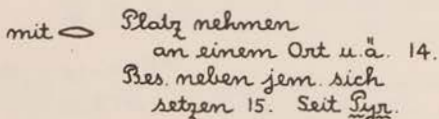 mit Platz nehmen
an einem Ort u. ä. 14.
Bes. neben jem. sich
setzen 15. Seit Pyr.